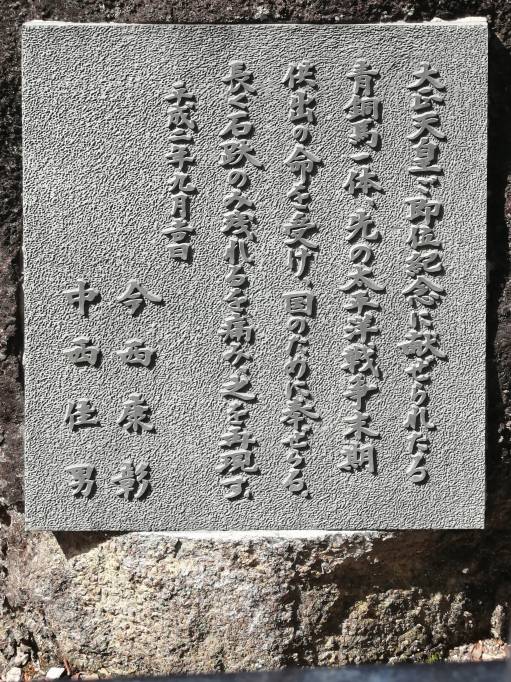 大正天皇ご即位紀念に献ぜられたる
青銅馬一体、先の太平洋戦争末期
供出の命を受け、国のために奉ぜらる、
長く石趺のみ残れるを痛み之を再現す、
平成二年九月吉日
今西康彰
中西住男